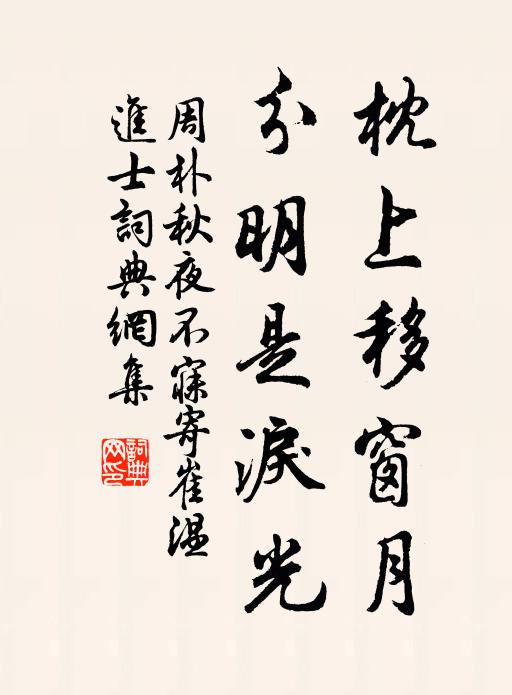 枕上移窗月
分明是淚光
周朴秋夜不寐寄崔溫
進士詞典網集
詞典
网印